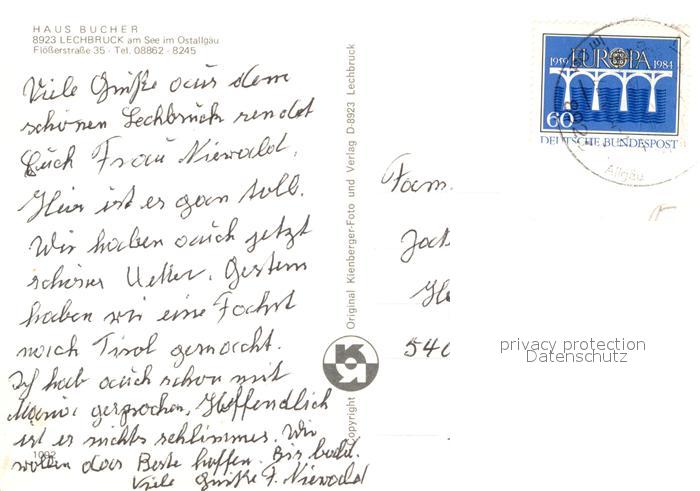 HAUS BUCHER
8923 LECHBRUCK am See im Ostallgäu
Flößerstraße 35 · Tel. 08862 · 8245
Viele Grüße aus dem
schönen Lechbruck sendet
Euch Frau Niewald.
Hier ist es gan toll.
Wir haben auch jetzt
schönes Wetter. Gestern
haben wir eine Fahrt
nach Tirol gemacht.
Ich hab auch schon mit
gesprochen, Hoffendlich
ist es nichts schlimmes. Wir
wollen das Beste hoffen. Bis bald.
Viele Grüße F. Niewald
1092
Copyright Original Kienberger-Foto und Verlag D-8923 Lechbruck
EUROPA
1959 1984
60
DEUTSCHE BUNDESPOST
Allgäu
Fam.
540
privacy protection
Datenschutz